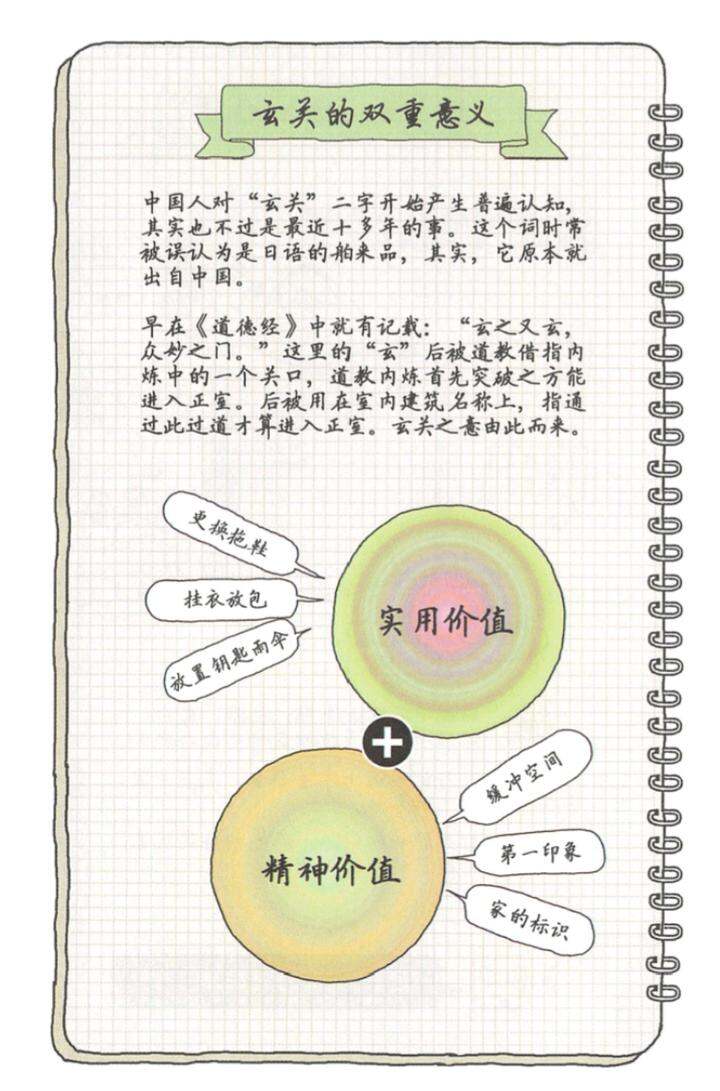 玄关的双重意义
中国人对“玄关”二字开始产生普遍认知，
其实也不过是最近十多年的事。这个词时常
被误认为是日语的舶来品，其实，它原本就
出自中国。
早在《道德经》中就有记载：“玄之又玄，
众妙之门。”这里的“玄”后被道教借指内
炼中的一个关口，道教内炼首先突破之方能
进入正室。后被用在室内建筑名称上，指通
过此过道才算进入正室。玄关之意由此而来。
更换拖鞋
挂衣放包
放置钥匙雨伞
实用价值
+
缓冲空间
第一印象
家的标识
精神价值